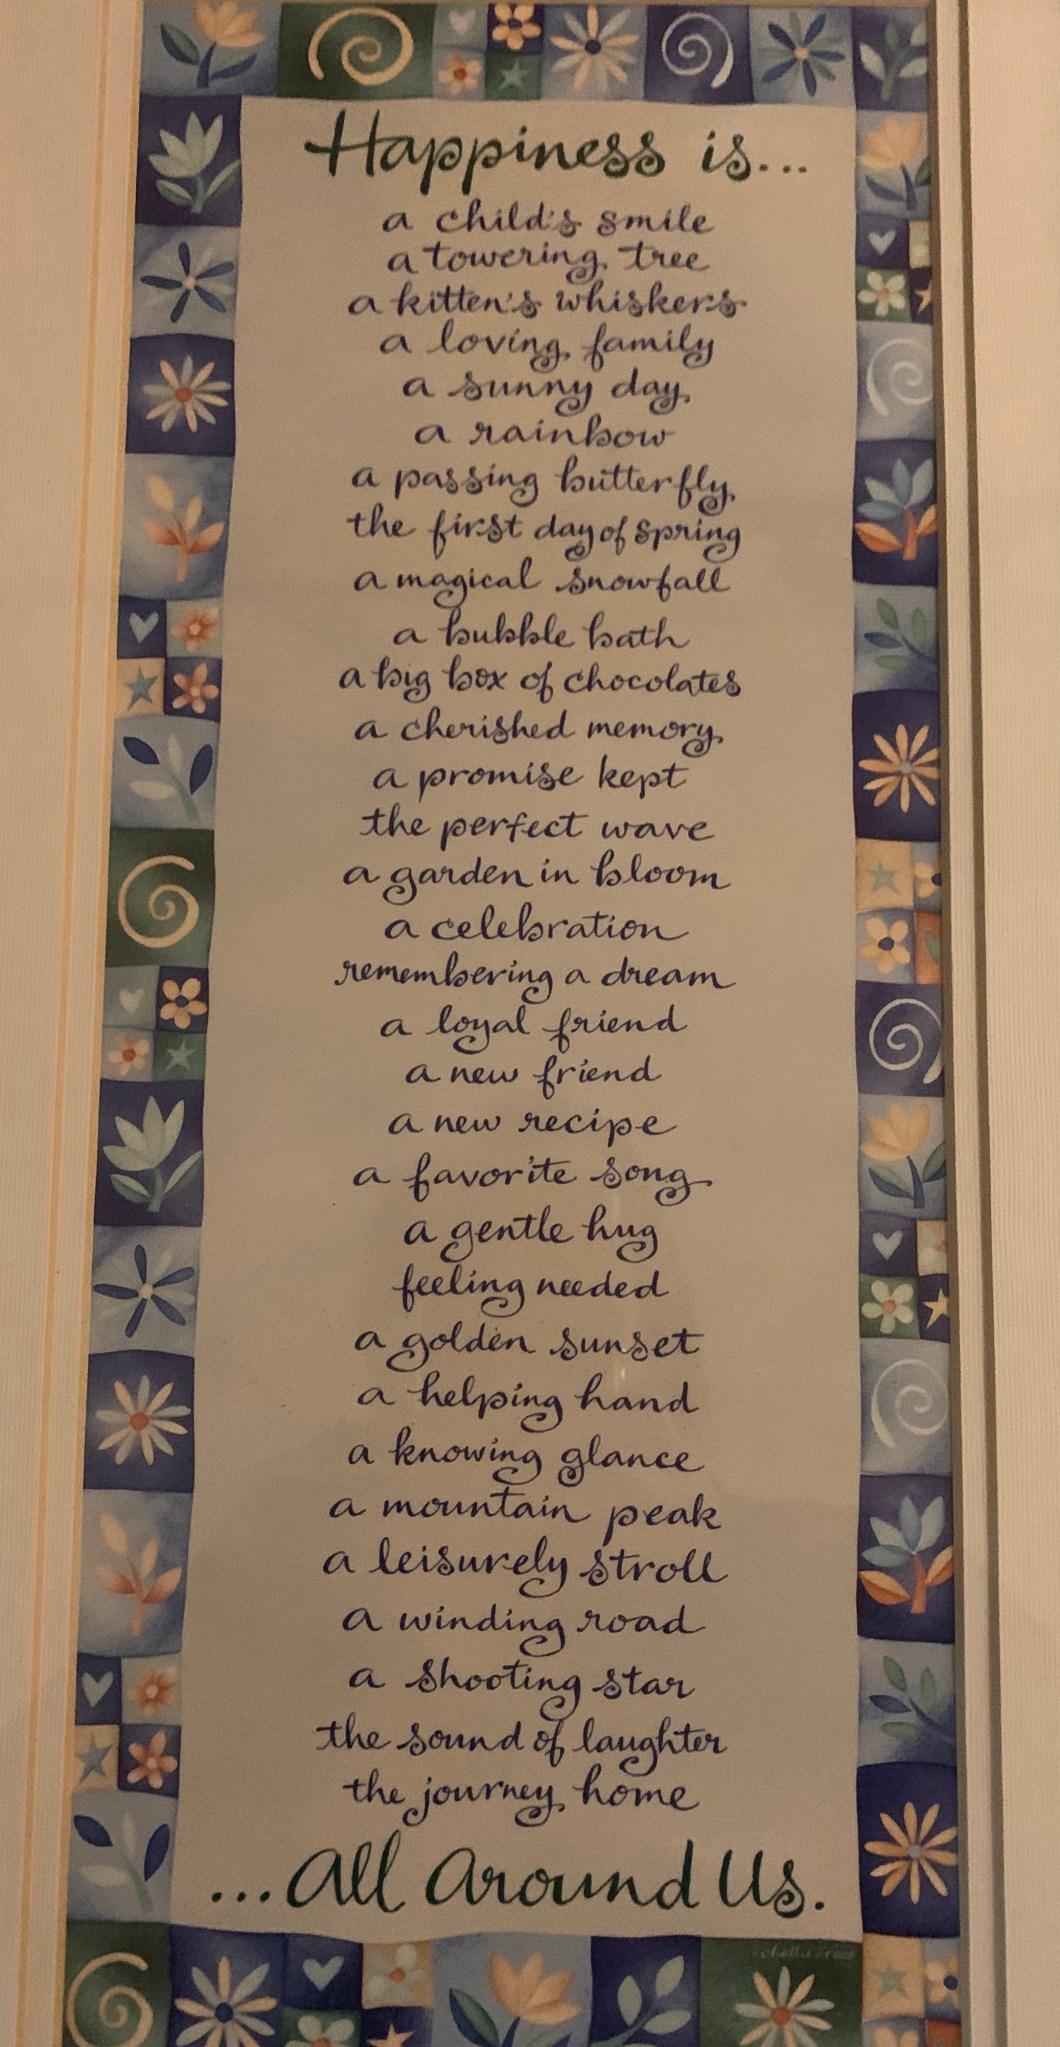 Happiness is...
a child's smile
a towering tree
a kitten's whiskers
a loving family
a sunny day
a rainbow
a passing butterfly
the first day of spring
a magical snowfall
a bubble bath
a big box of chocolates
a cherished memory
a promise kept
the perfect wave
a garden in bloom
a celebration
remembering a dream
a loyal friend
a new friend
a new recipe
a favorite song
a gentle hug
feeling needed
a golden sunset
a helping hand
a knowing glance
a mountain peak
a leisurely stroll
a winding road
a shooting star
the sound of laughter
the journey home
...All Around Us.